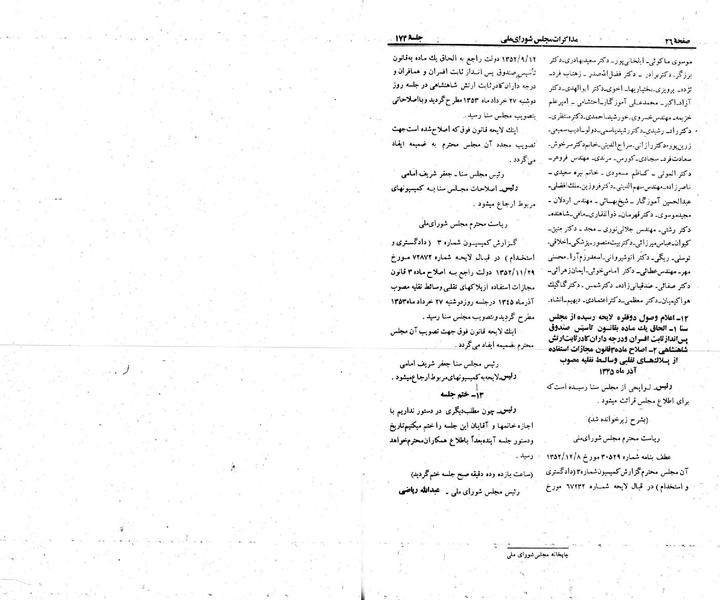 صفحهٔ ۲۶
مذاکرات مجلس شورای ملی
جلسهٔ ۱۷۳
موسوی ماکوئی ـ ایلخانی‌پور ـ دکتر سعید بهادری ـ دکتر
برزگر ـ دکتر برادر ـ دکتر فضل‌الله صدر ـ زهتاب فرد ـ
نژده ـ پرویزی ـ بختیاریها ـ اخوی ـ دکتر ابوالهدی ـ دکتر
آزاد ـ اکبر ـ محمد علی آموزگار ـ احتشامی ـ امیر علم
خزیمه ـ مهندس خسروی ـ خورشید احمدی ـ دکتر منتظری ـ
دکتر راد ـ رشیدی ـ دکتر رشید یاسمی ـ دولو ـ ادیب سمیعی ـ
زرین پور ـ دکتر رازانی ـ سراج الدینی ـ خانم دکتر سرخوش ـ
سعادت فرد ـ سجادی ـ کورس ـ مرندی ـ مهندس فروهر ـ
دکتر الموتی ـ کاظم مسعودی ـ خانم نیره سعیدی ـ
ناصرزاده ـ مهندس سهم الدینی ـ دکتر فروزین ـ ملک افضلی ـ
عبدالحسین آموزگار ـ شیخ بهائی ـ مهندس اردلان ـ
مجید موسوی ـ دکتر قهرمان ـ ذوالفقاری ـ مافی ـ شاهنده ـ
دکتر رشتی ـ مهندس جلالی نوری ـ مجد ـ دکتر متین ـ
کیوان ـ عباس میرزائی ـ دکتر بیت منصور ـ پزشکی ـ اخلاقی ـ
توسلی ـ ریگی ـ دکتر انوشیروانی ـ اسعد رزم آرا ـ محسنی
مهر ـ مهندس عطائی ـ دکتر امامی خوئی ـ ایمان زهرائی ـ
دکتر صفائی ـ صدقیانی زاده ـ دکتر شمس ـ دکتر گاگیک
هواکیمیان ـ دکتر معظمی ـ دکتر اعتمادی ـ دیهیم ـ انشاء.
۱۲ـ اعلام وصول دو فقره لایحه رسیده از مجلس
سنا ۱ـ الحاق یک ماده بقانون تأسیس صندوق
پس انداز ثابت افسران و درجه داران کادر ثابت ارتش
شاهنشاهی ۲ـ اصلاح ماده ۳ قانون مجازات استفاده
از پلاک‌های تقلبی وسائط نقلیه مصوب
آذر ماه ۱۳۴۵
رئیس ـ لوایحی از مجلس سنا رسیده است که
برای اطلاع مجلس قرائت میشود .
(بشرح زیر خوانده شد)
ریاست محترم مجلس شورای ملی
عطف بنامه شماره ۳۰۵۲۹ مورخ ۱۳۵۲/۱۲/۸
آن مجلس محترم گزارش کمیسیون شماره ۳ (دادگستری
و استخدام) در قبال لایحه شماره ۶۷۲۳۲ مورخ
۱۳۵۲/۹/۱۲ دولت راجع به الحاق یک ماده به قانون
تأسیس صندوق پس انداز ثابت افسران و همافران و
درجه داران کادر ثابت ارتش شاهنشاهی در جلسه روز
دوشنبه ۲۷ خرداد ماه ۱۳۵۳ مطرح گردید و با اصلاحاتی
بتصویب مجلس سنا رسید .
اینک لایحه قانون فوق که اصلاح شده است جهت
تصویب مجدد آن مجلس محترم به ضمیمه ایفاد
می گردد .
رئیس مجلس سنا ـ جعفر شریف امامی
رئیس ـ اصلاحات مجلس سنا به کمیسیونهای
مربوط ارجاع میشود .
ریاست محترم مجلس شورای ملی
گزارش کمیسیون شماره ۳ (دادگستری و
استخدام) در قبال لایحه شماره ۷۲۸۷۲ مورخ
۱۳۵۲/۱۱/۲۹ دولت راجع به اصلاح ماده ۳ قانون
مجازات استفاده از پلاکهای تقلبی وسائط نقلیه مصوب
آذر ماه ۱۳۴۵ در جلسه روز دوشنبه ۲۷ خرداد ماه ۱۳۵۳
مطرح گردید و بتصویب مجلس سنا رسید .
اینک لایحه قانون فوق جهت تصویب آن مجلس
محترم بضمیمه ایفاد می گردد .
رئیس مجلس سنا جعفر شریف امامی
رئیس ـ لایحه به کمیسیونهای مربوط ارجاع میشود .
۱۳ـ ختم جلسه
رئیس ـ چون مطلب دیگری در دستور نداریم با
اجازه خانمها و آقایان این جلسه را ختم میکنیم تاریخ
و دستور جلسه آینده بعداً باطلاع همکاران محترم خواهد
رسید .
(ساعت یازده و ده دقیقه صبح جلسه ختم گردید)
رئیس مجلس شورای ملی ـ عبدالله ریاضی
چاپخانه مجلس شورای ملی